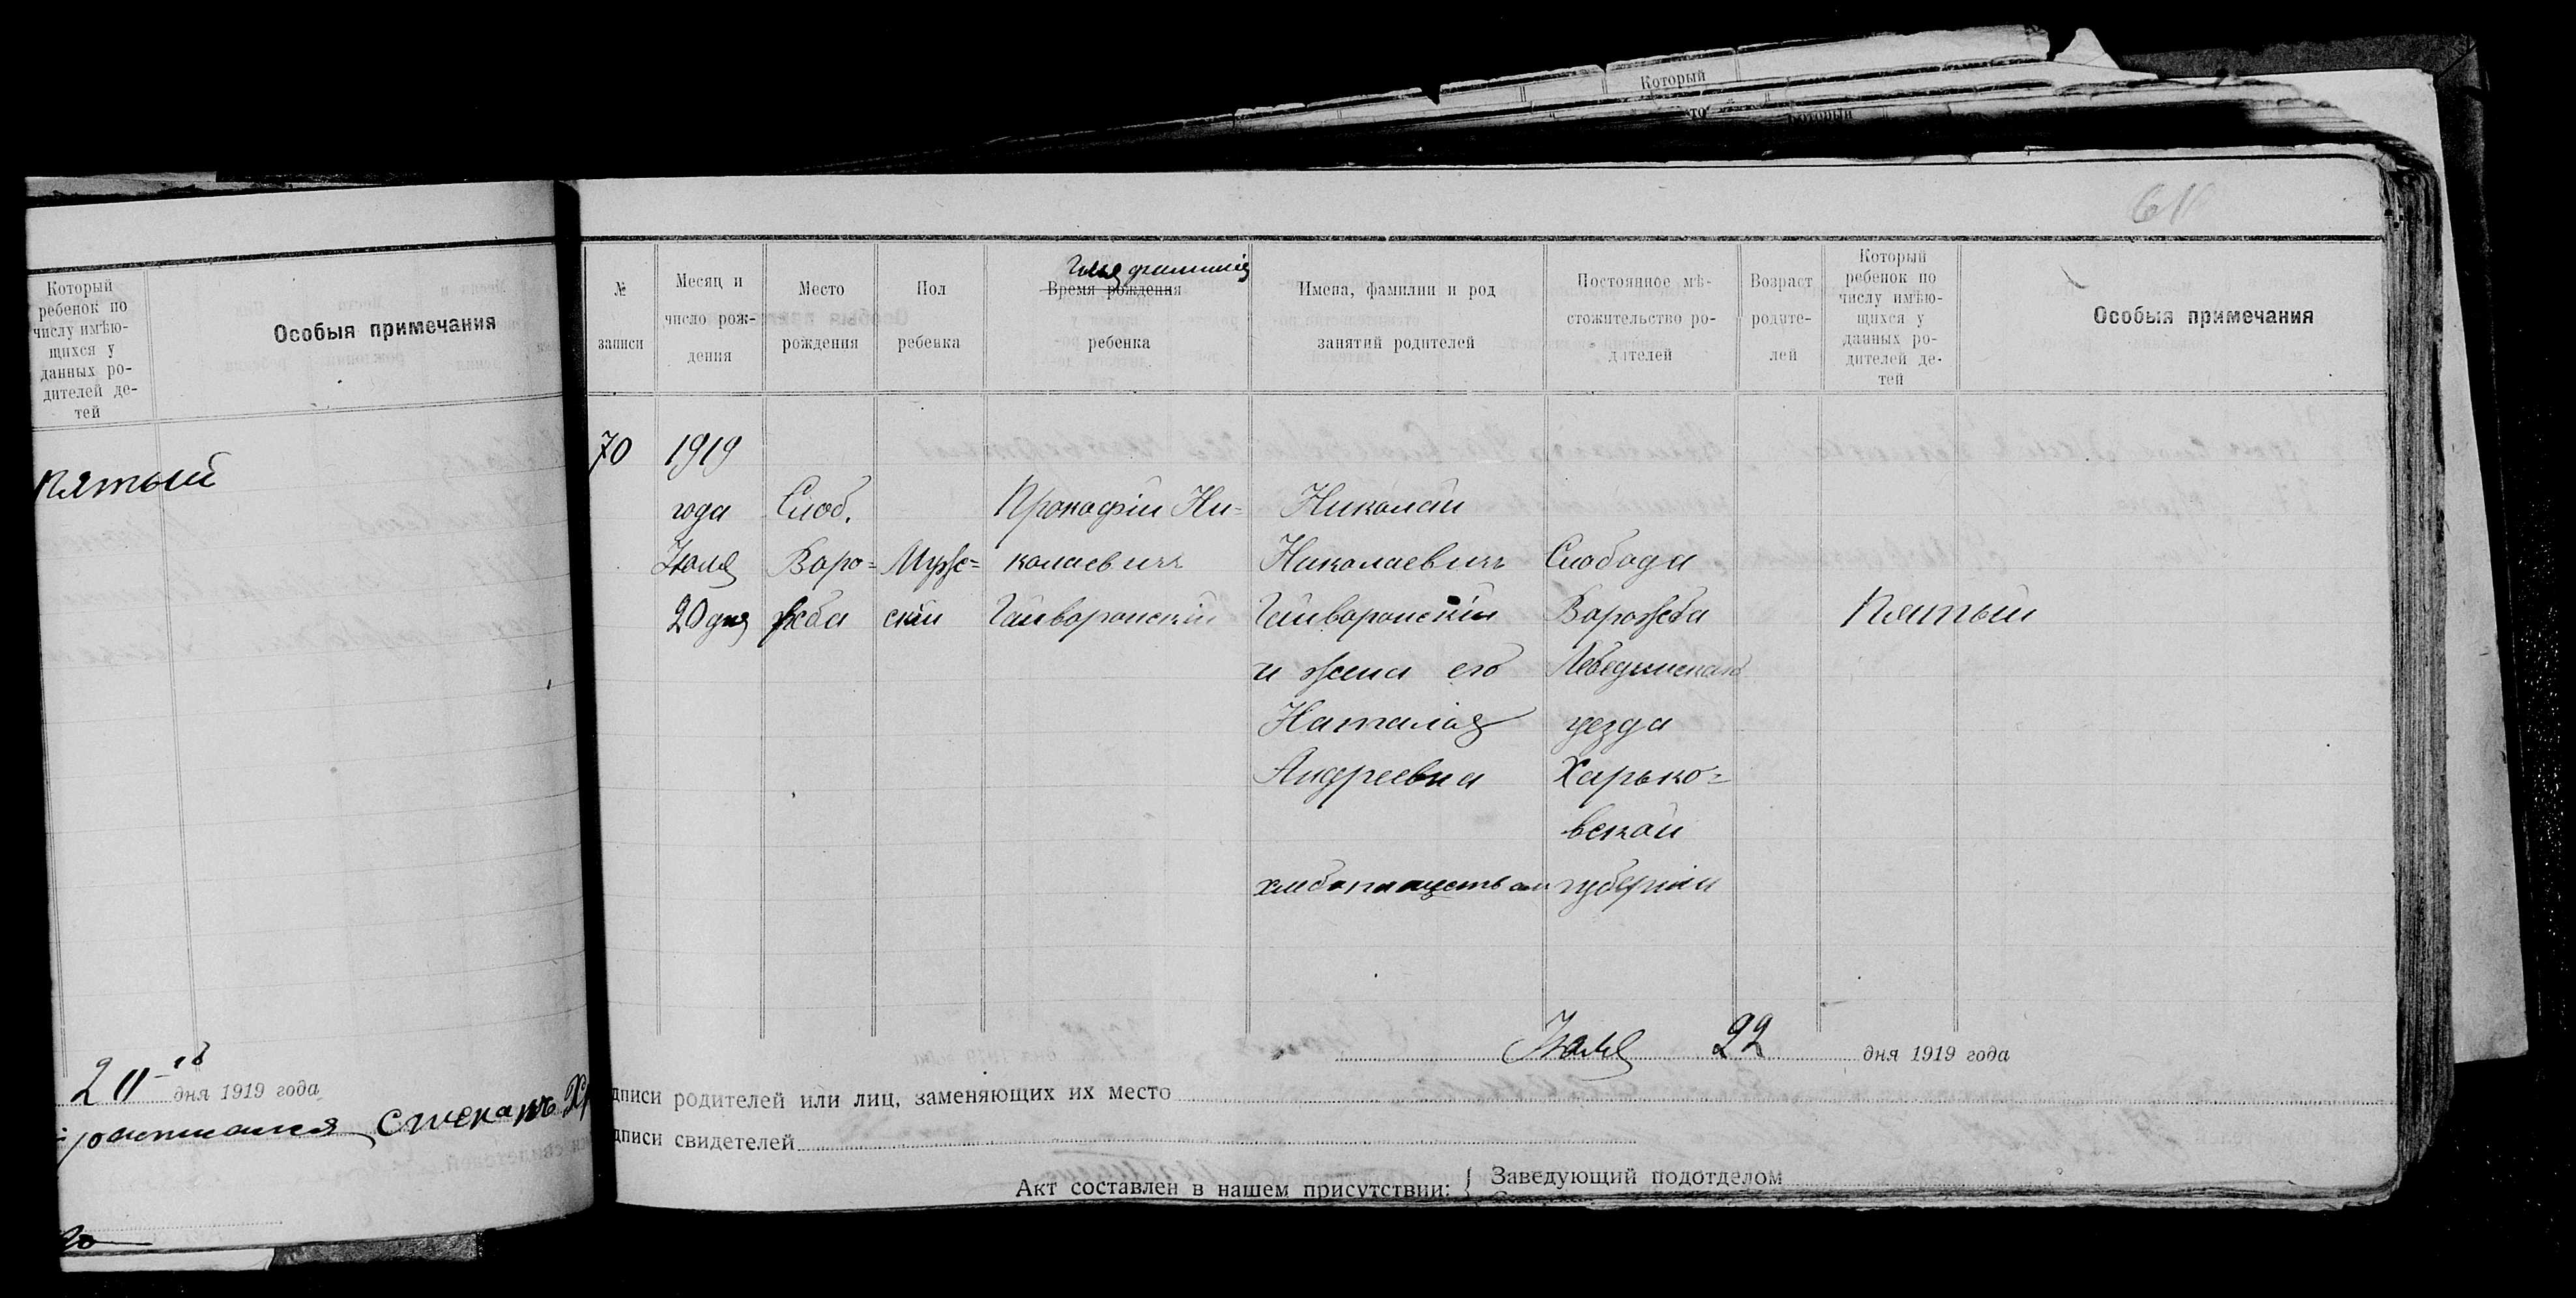 Который
то который
61
Который
ребенок по
числу имѣю-
щихся у
данных ро-
дителей де-
тей
Особыя примечания
пятый
дня 1919 года
№
записи
Месяц и
число рож-
дения
Место
рождения
Пол
ребенка
Имя фамилия
Время рождения
ребенка
Имена, фамилии и род
занятий родителей
Постоянное мѣ-
стожительство ро-
дителей
Возраст
родите-
лей
Который
ребенок по
числу имѣю-
щихся у
данных ро-
дителей де-
тей
Особыя примечания
70
1919
года
Июля
20 дня
Слоб.
Воро=
жба
Мужс=
скiй
Прокофiй Ни=
колаевичъ
Гайворонскiй
Николай
Николаевичъ
Гайворонскiй
и жена его
Наталiя
Андреевна
хлебопашеством
Слобода
Ворожба
Лебединскаго
уезда
Харько=
вской
губернiи
Пятый
Июля 22 дня 1919 года
дписи родителей или лиц, заменяющих их место
дписи свидетелей
Акт составлен в нашем присутствии: { Заведующий подотделом